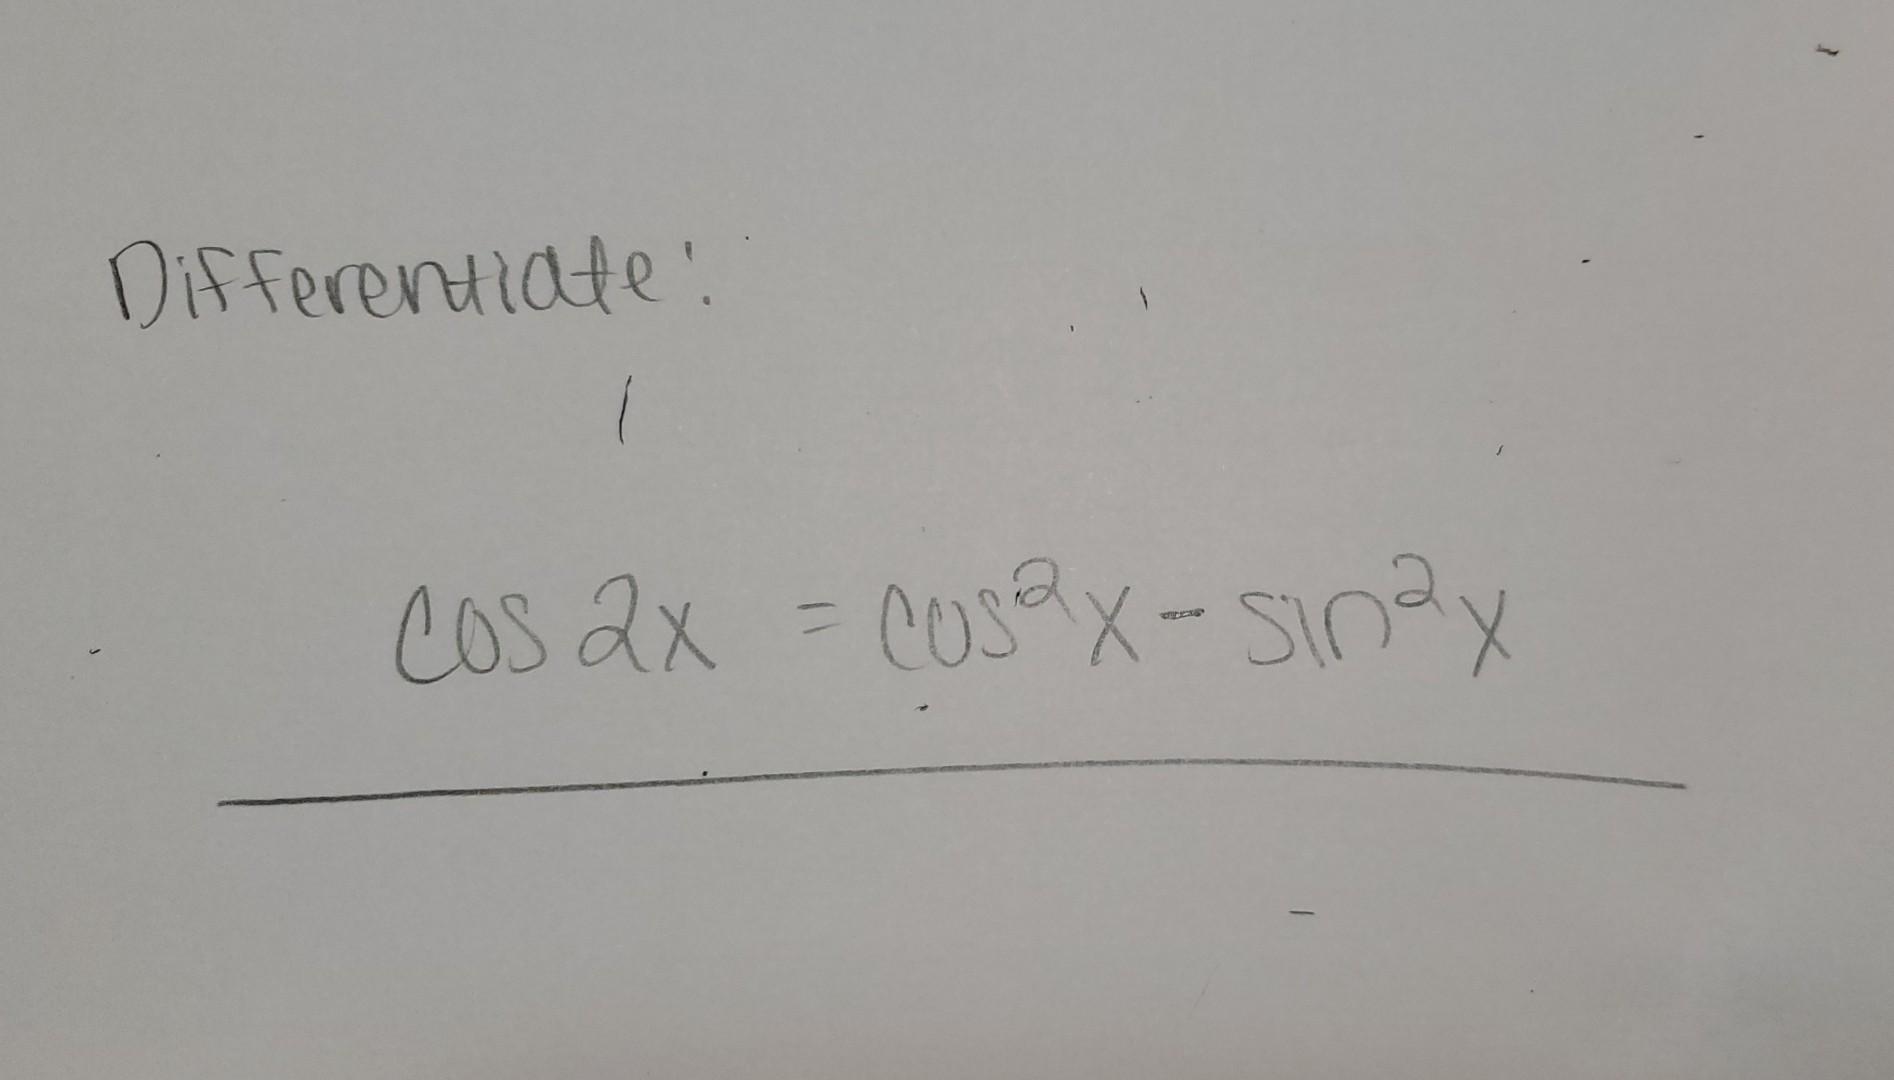 Differentiate:
cos 2x = cos²x - sin²x